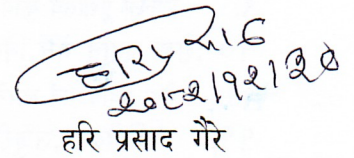 २०८२/१२/२०
हरि प्रसाद गैरे